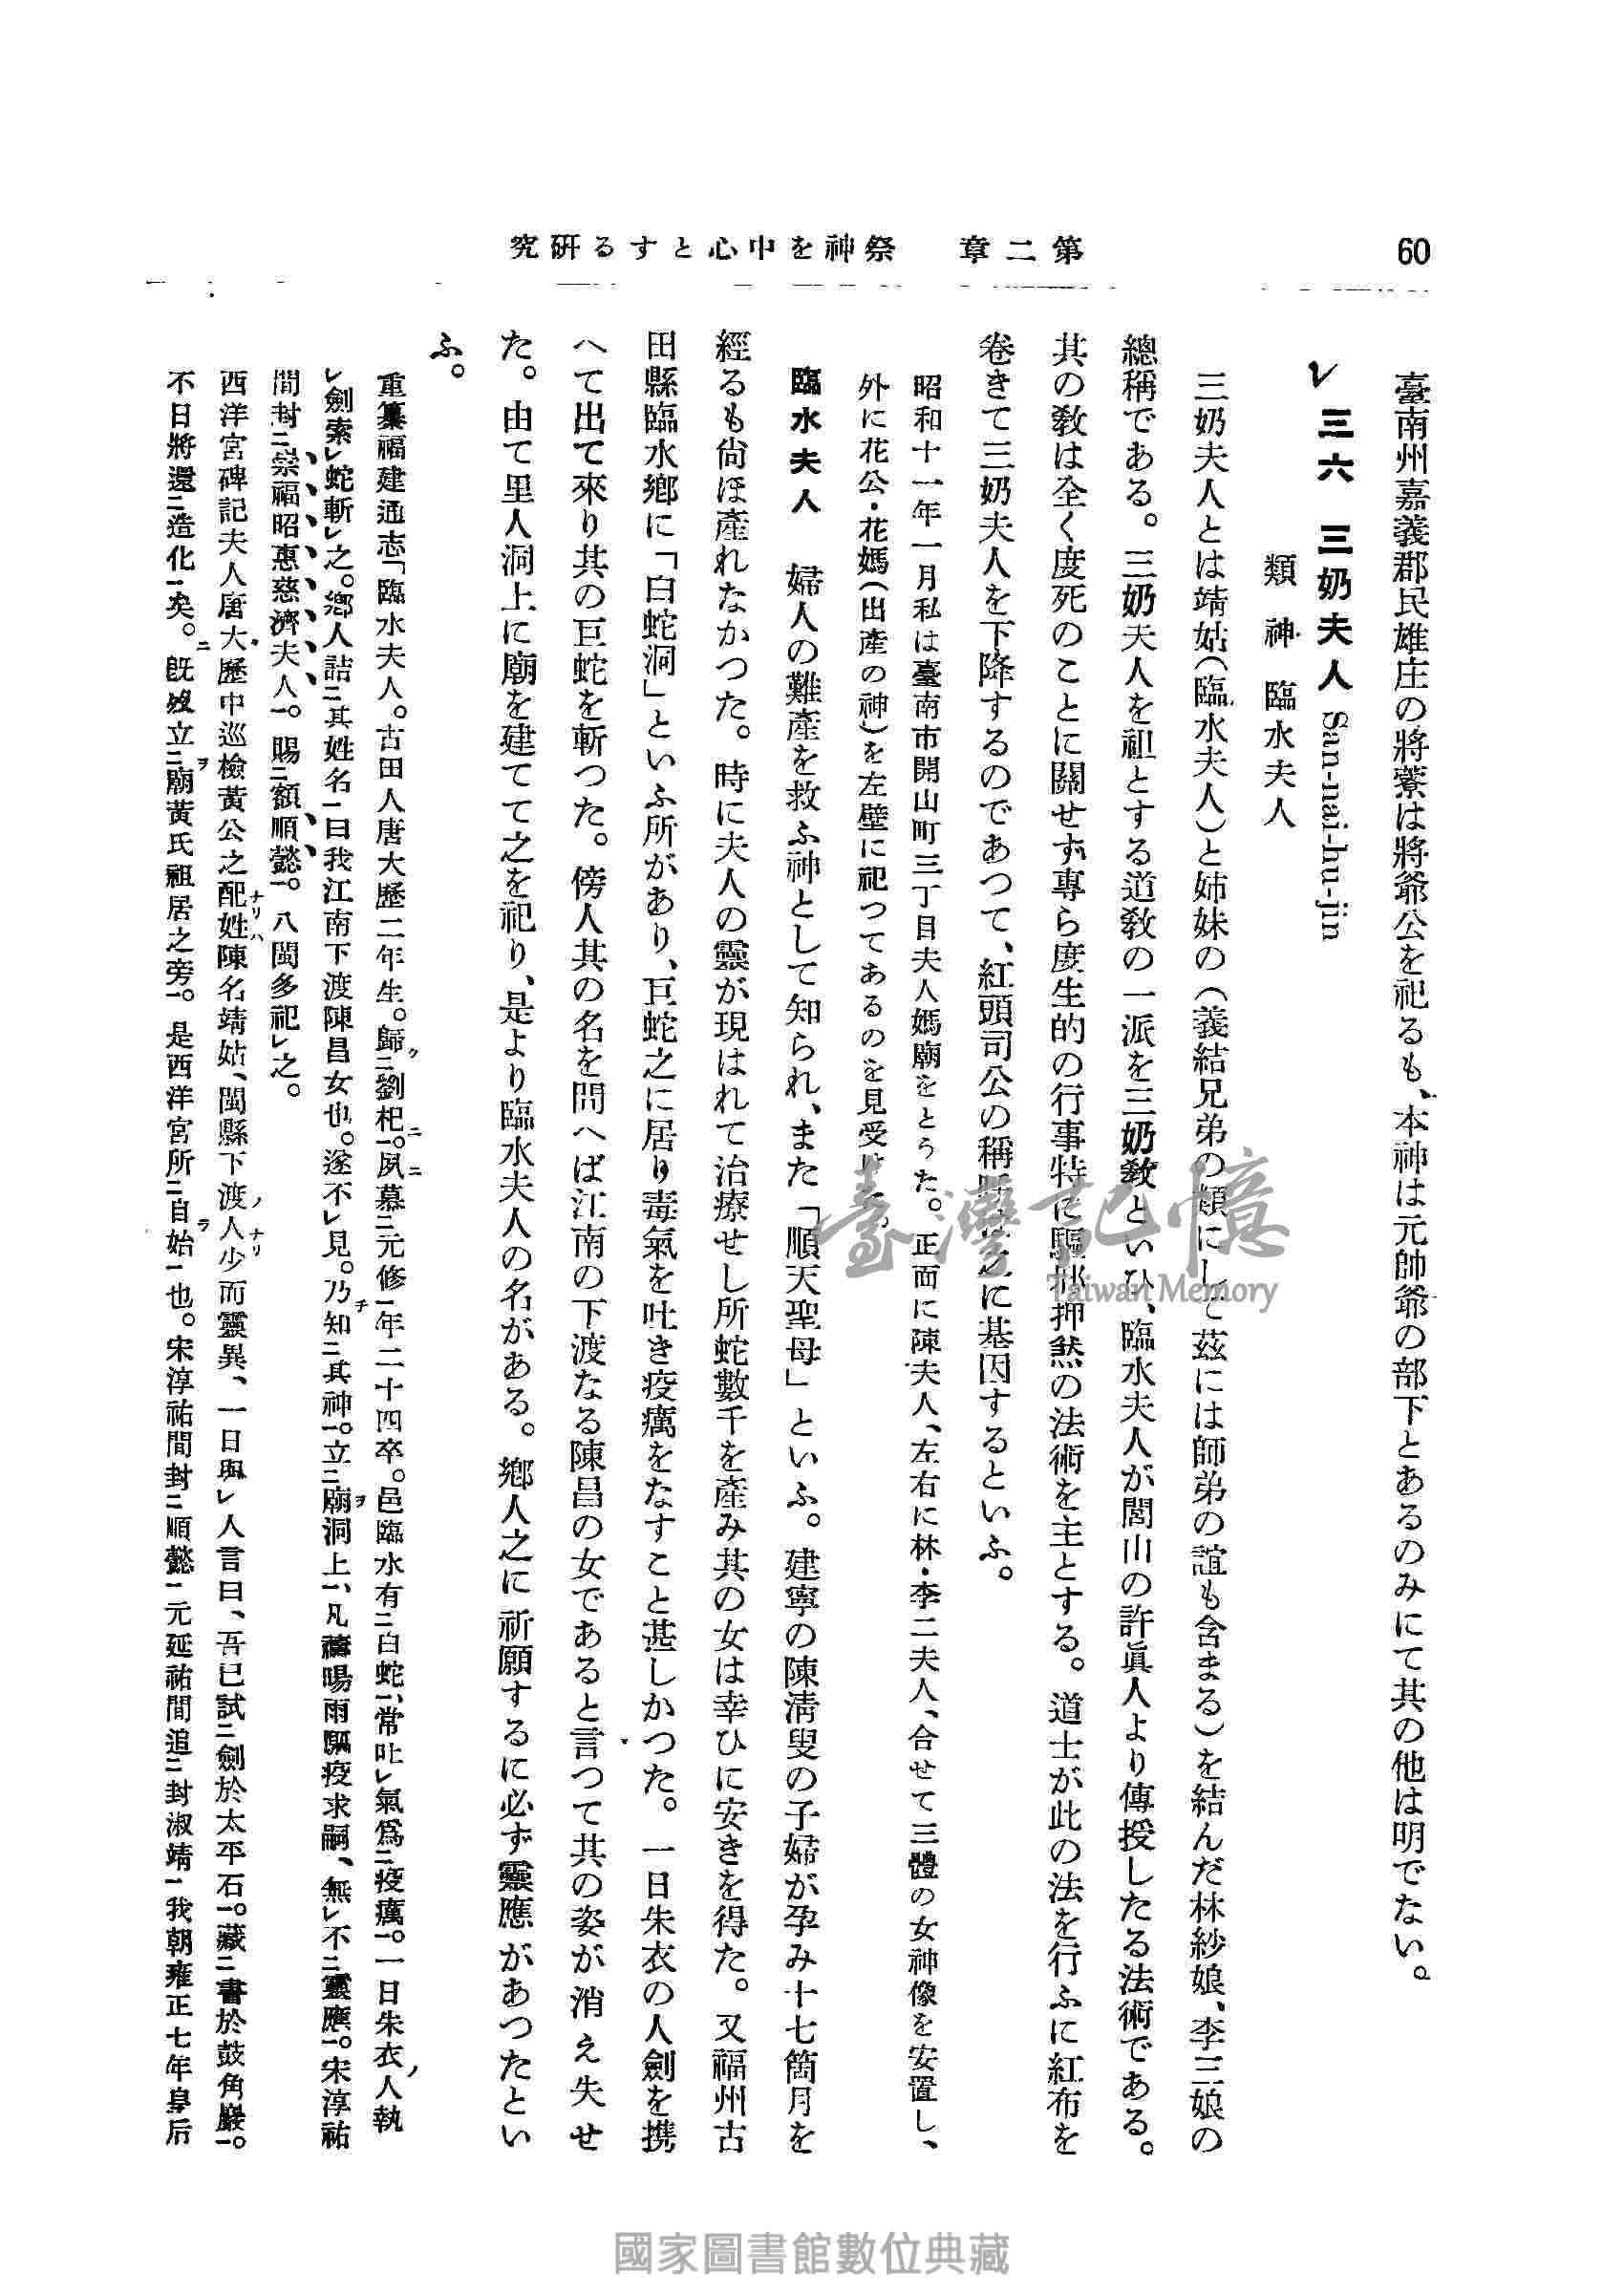 60
第二章 祭神を中心とする研究
臺南州嘉義郡民雄庄の將藔は將爺公を祀るも、本神は元帥爺の部下とあるのみにて其の他は明でない。
三六 三奶夫人 San-nai-hu-jin
類神 臨水夫人
三奶夫人とは靖姑(臨水夫人)と姉妹の(義結兄弟の類にして茲には師弟の誼も含まる)を結んだ林紗娘、李三娘の
總稱である。三奶夫人を祖とする道敎の一派を三奶敎といひ、臨水夫人が閭山の許眞人より傳授したる法術である。
其の敎は全く度死のことに關せず專ら度生的の行事特に驅邪押煞の法術を主とする。道士が此の法を行ふに紅布を
卷きて三奶夫人を下降するのであつて、紅頭司公の稱に基因するといふ。
昭和十一年一月私は臺南市開山町三丁目夫人媽廟をとうた。正面に陳夫人、左右に林・李二夫人、合せて三體の女神像を安置し、
外に花公・花媽(出產の神)を左壁に祀つてあるのを見受
臨水夫人 婦人の難產を救ふ神として知られ、また「順天聖母」といふ。建寧の陳淸叟の子婦が孕み十七箇月を
經るも尙ほ產れなかつた。時に夫人の靈が現はれて治療せし所蛇數千を產み其の女は幸ひに安きを得た。又福州古
田縣臨水鄕に「白蛇洞」といふ所があり、巨蛇之に居り毒氣を吐き疫癘をなすこと甚しかつた。一日朱衣の人劍を携
へて出て來り其の巨蛇を斬つた。傍人其の名を問へば江南の下渡なる陳昌の女であると言つて其の姿が消え失せ
た。由て里人洞上に廟を建てて之を祀り、是より臨水夫人の名がある。鄕人之に祈願するに必ず靈應があつたとい
ふ。
重纂福建通志「臨水夫人。古田人唐大歷二年生。歸ク二劉杞一。夙ニ慕ニ二元修一年二十四卒。邑臨水有二白蛇一、常吐レ氣爲二疫癘一。一日朱衣ノ人執
レ劍索レ蛇斬レ之。鄕人詰二其姓名一曰我江南下渡陳昌女也。遂不レ見。乃チ知二其神一。立二廟ヲ洞上一、凡禱暘雨驅疫求嗣、無レ不二靈應一。宋淳祐
間封二崇福昭惠慈濟夫人一。賜二額順懿一。八閩多祀レ之。
西洋宮碑記夫人唐大歷中巡檢黃公之配ナリ姓ハ陳名靖姑、閩縣下渡ノ人ナリ少而靈異、一日與レ人言曰、吾已試二劍於太平石一。藏二書於鼓角巖一。
不日將還二造化一矣。旣ニ歿立二廟ヲ黃氏祖居之旁一。是西洋宮所二自ラ始一也。宋淳祐間封二順懿一元延祐間追二封淑靖一我朝雍正七年皇后
臺灣記憶
Taiwan Memory
國家圖書館數位典藏